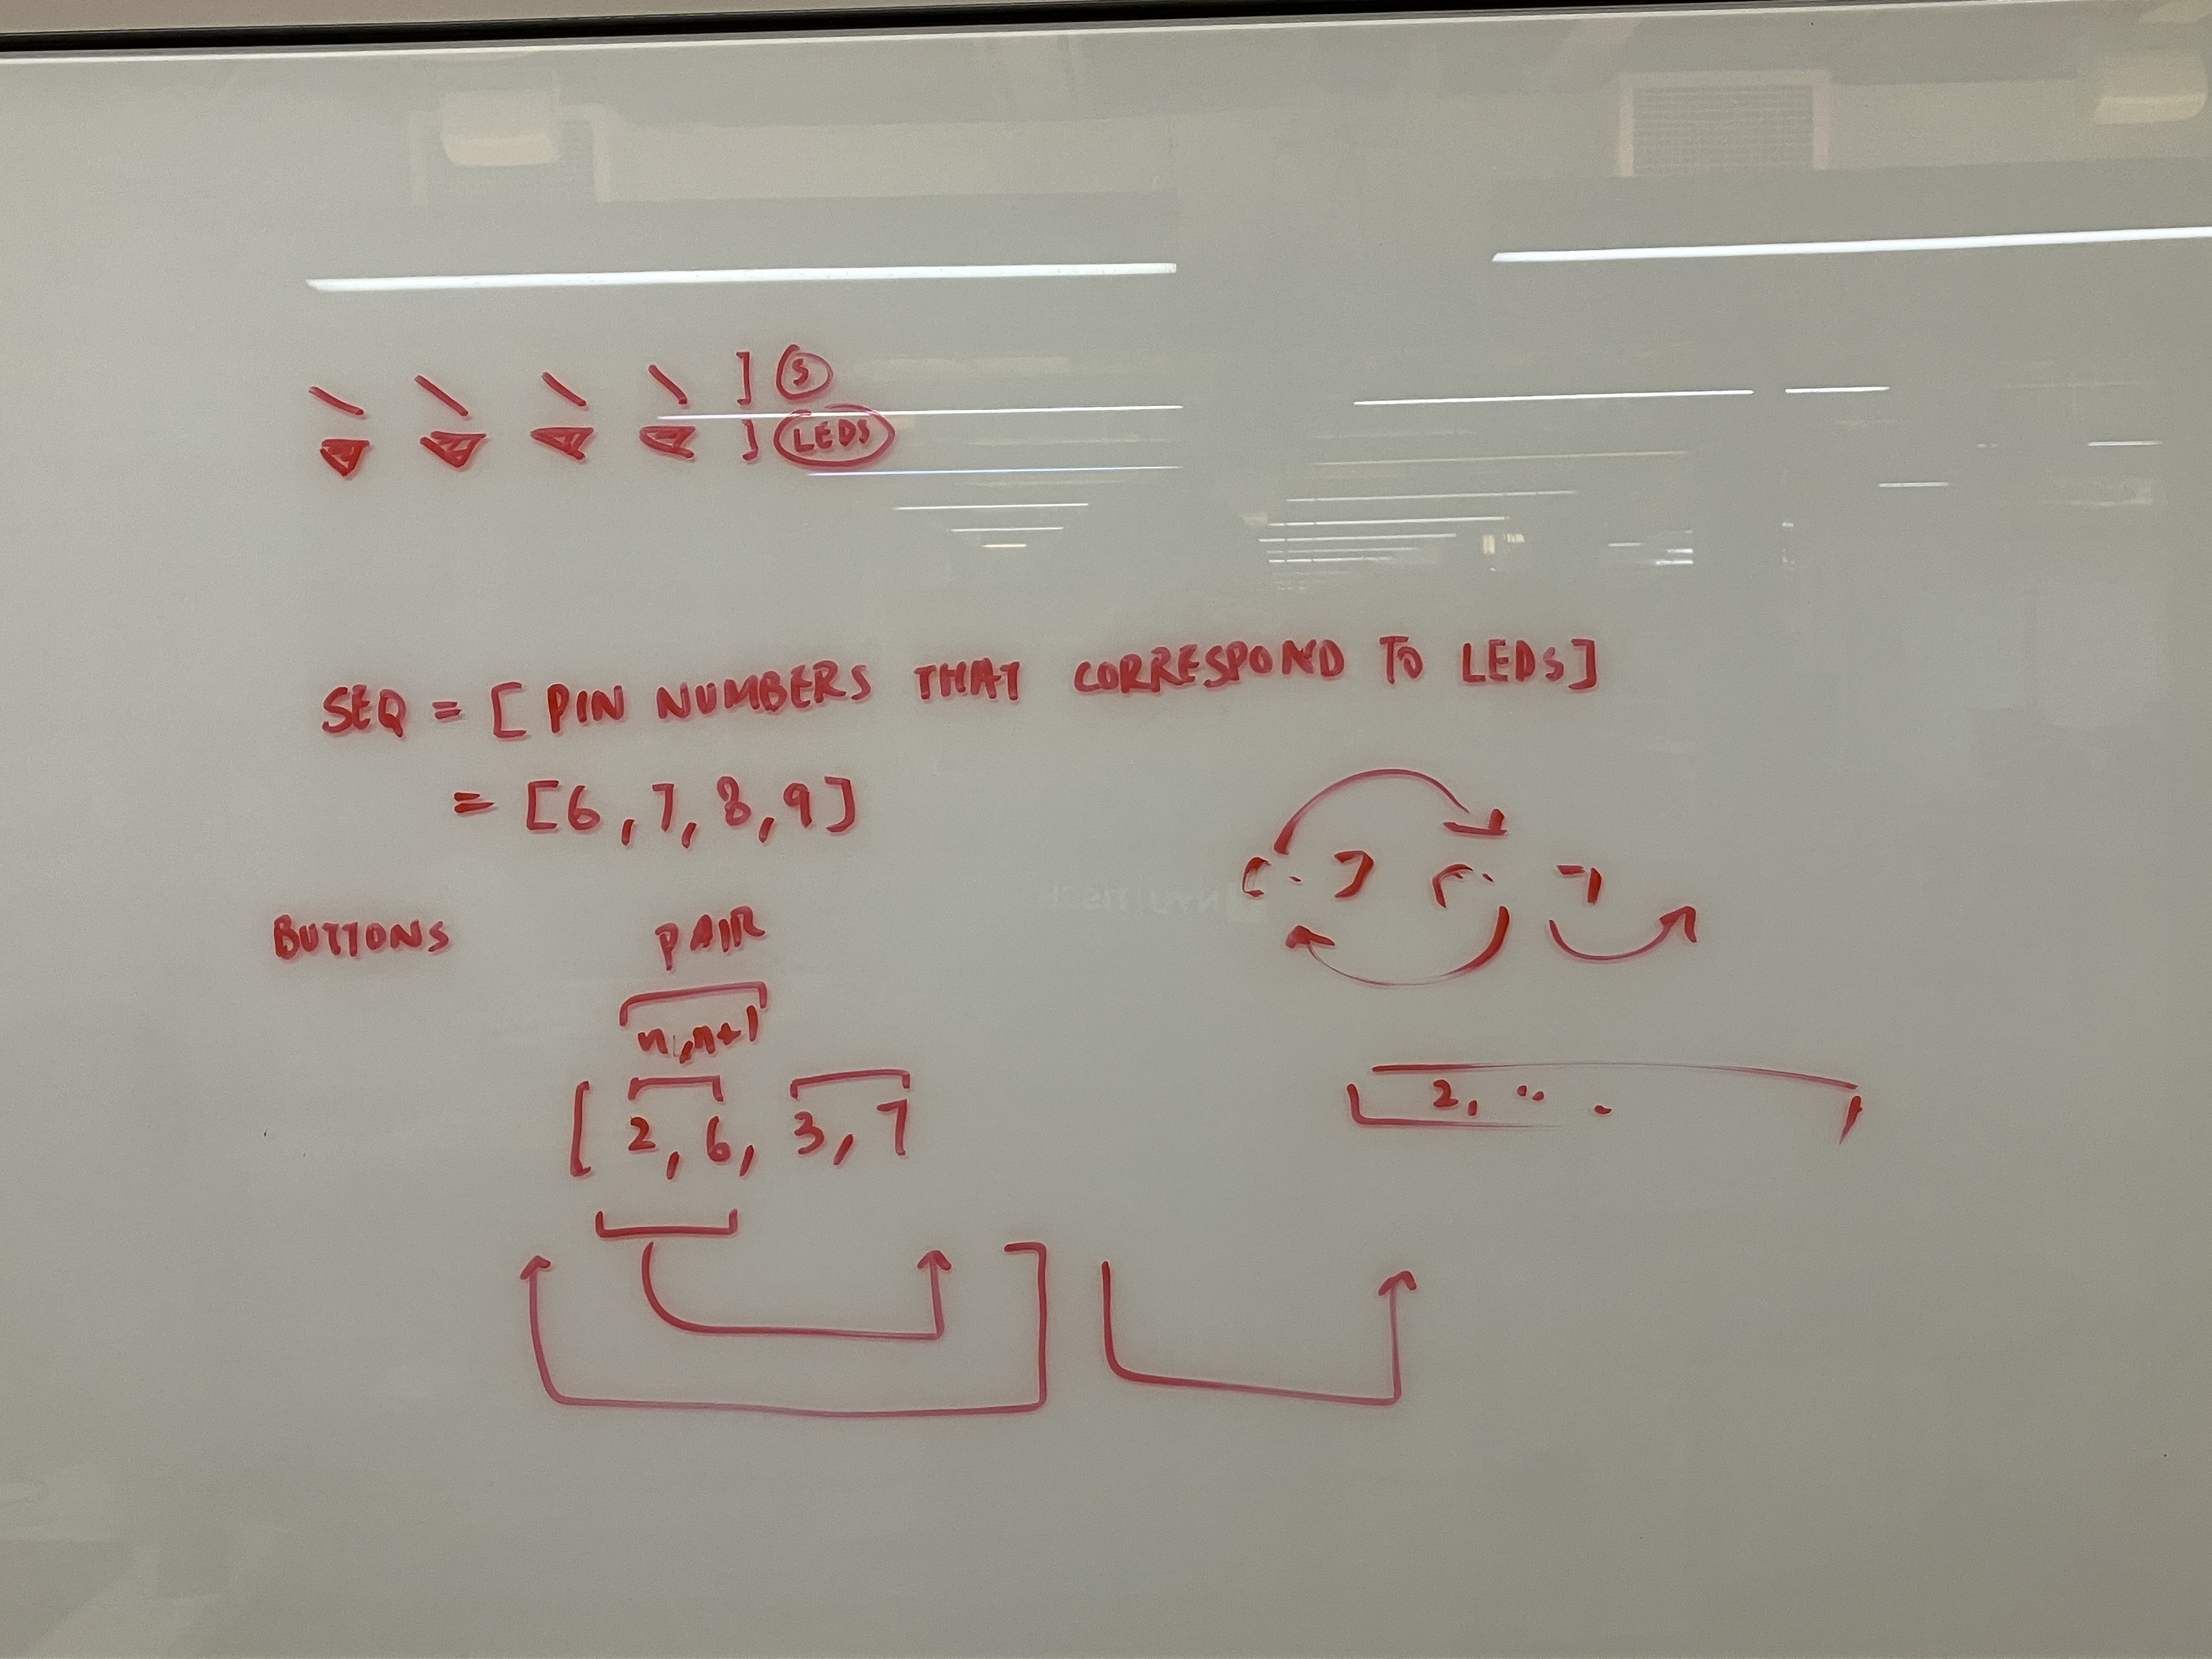 ] S
] LEDS
SEQ = [ PIN NUMBERS THAT CORRESPOND TO LEDS]
= [6, 7, 8, 9]
BUTTONS
PAIR
n, n+1
[ 2, 6, 3, 7
2, ...